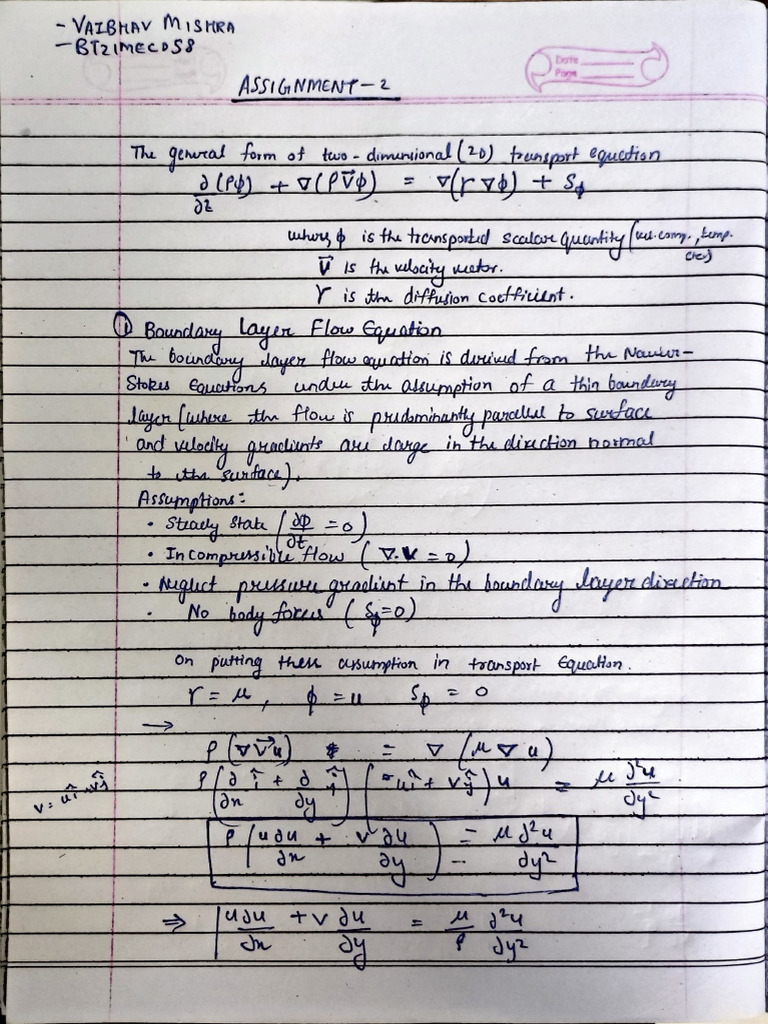 - VAIBHAV MISHRA
- BT21MEC058
Date
Page
ASSIGNMENT-2
The general form of two-dimensional (2D) transport equation
∂(ρφ)/∂t + ∇(ρV⃗φ) = ∇(γ∇φ) + Sφ
where, φ is the transported scalar quantity (vel. comp., temp.
etc)
V⃗ is the velocity vector.
γ is the diffusion coefficient.
① Boundary Layer Flow Equation
The boundary layer flow equation is derived from the Navier-
Stokes Equations under the assumption of a thin boundary
layer (where the flow is predominantly parallel to surface
and velocity gradients are large in the direction normal
to the surface).
Assumptions:
• Steady State (∂φ/∂t = 0)
• Incompressible flow (∇.V = 0)
• Neglect pressure gradient in the boundary layer direction
• No body forces (Sφ=0)
On putting these assumption in transport Equation.
γ = μ, φ = u Sφ = 0
→
ρ(∇V⃗u) = ∇(μ∇u)
v = uî+vĵ
ρ(∂/∂x î + ∂/∂y ĵ)(uî + vĵ)u = μ ∂²u/∂y²
ρ(u∂u/∂x + v∂u/∂y) = μ ∂²u/∂y²
⇒ u∂u/∂x + v ∂u/∂y = μ/ρ ∂²u/∂y²